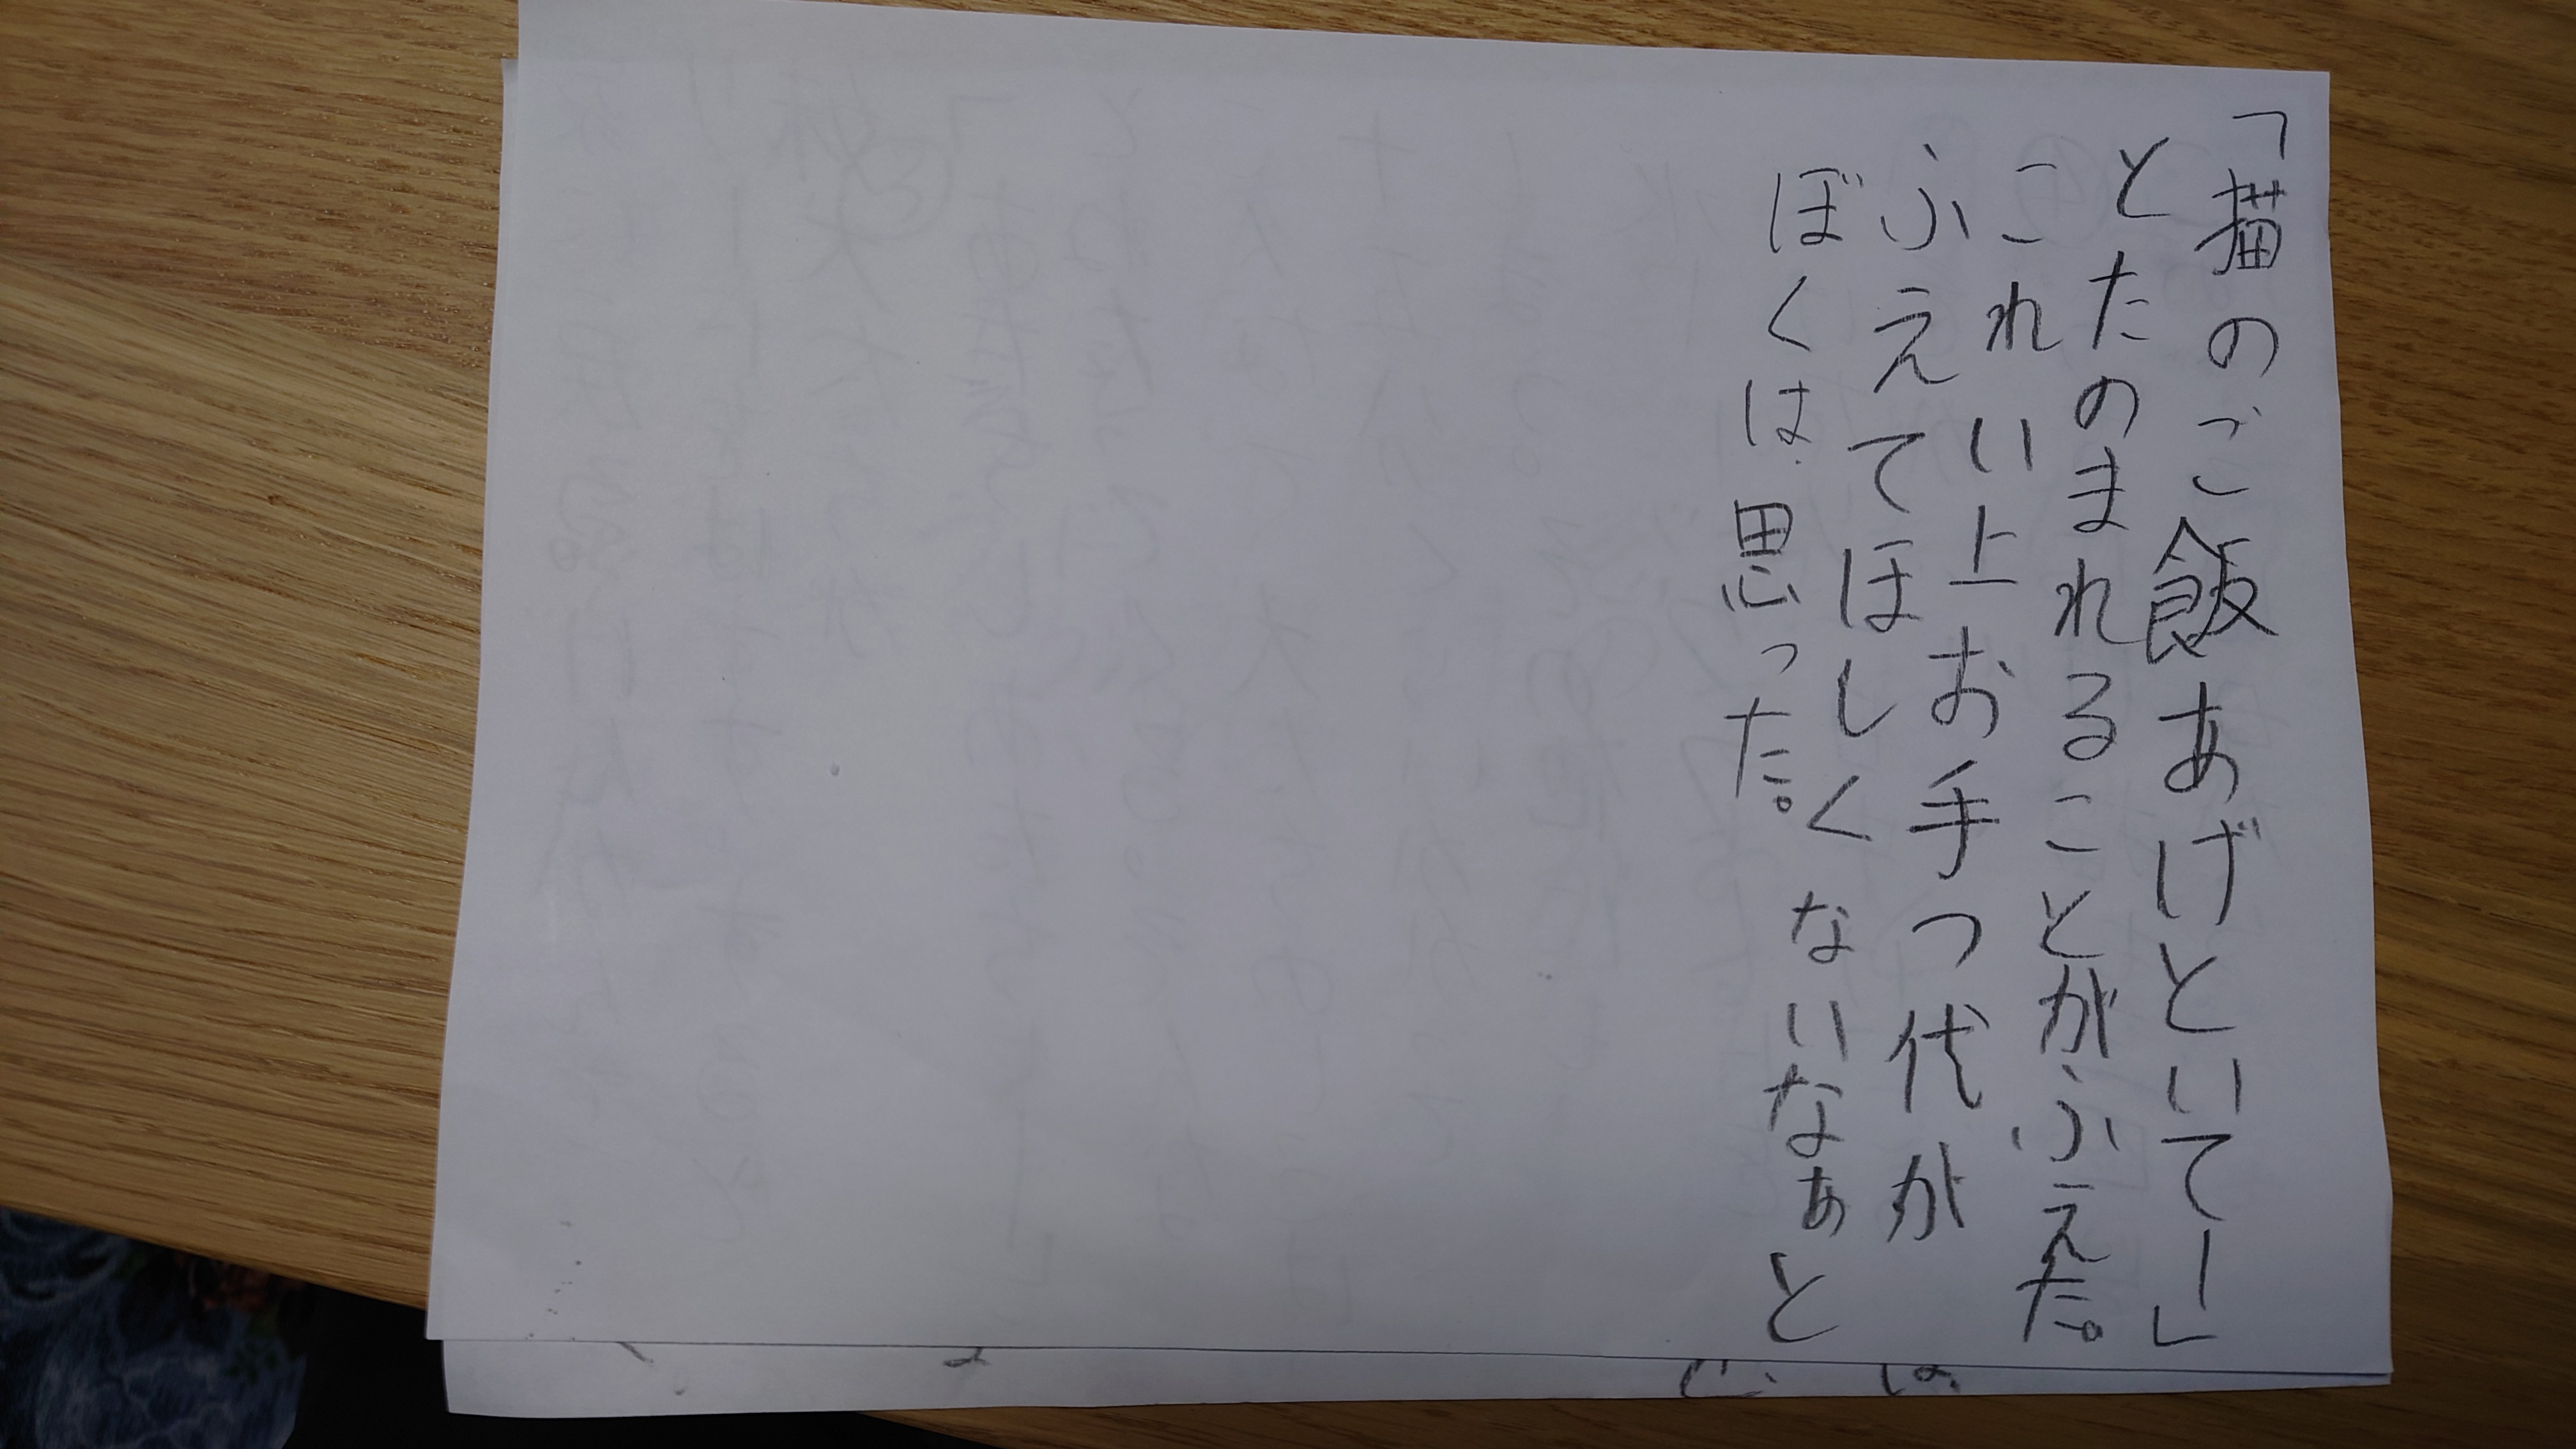 「猫のご飯あげといてー」
とたのまれることがふえた。
これい上お手つ代が
ふえてほしくないなぁと
ぼくは思った。